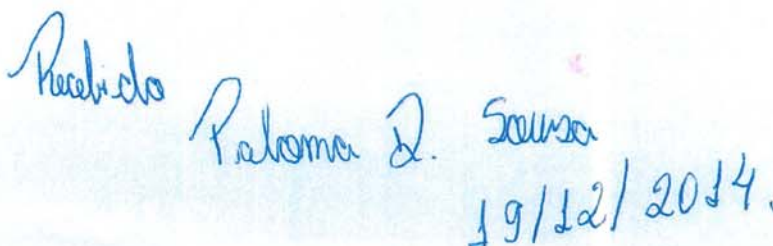 Recebido
Paloma D. Sousa
19/12/2014.